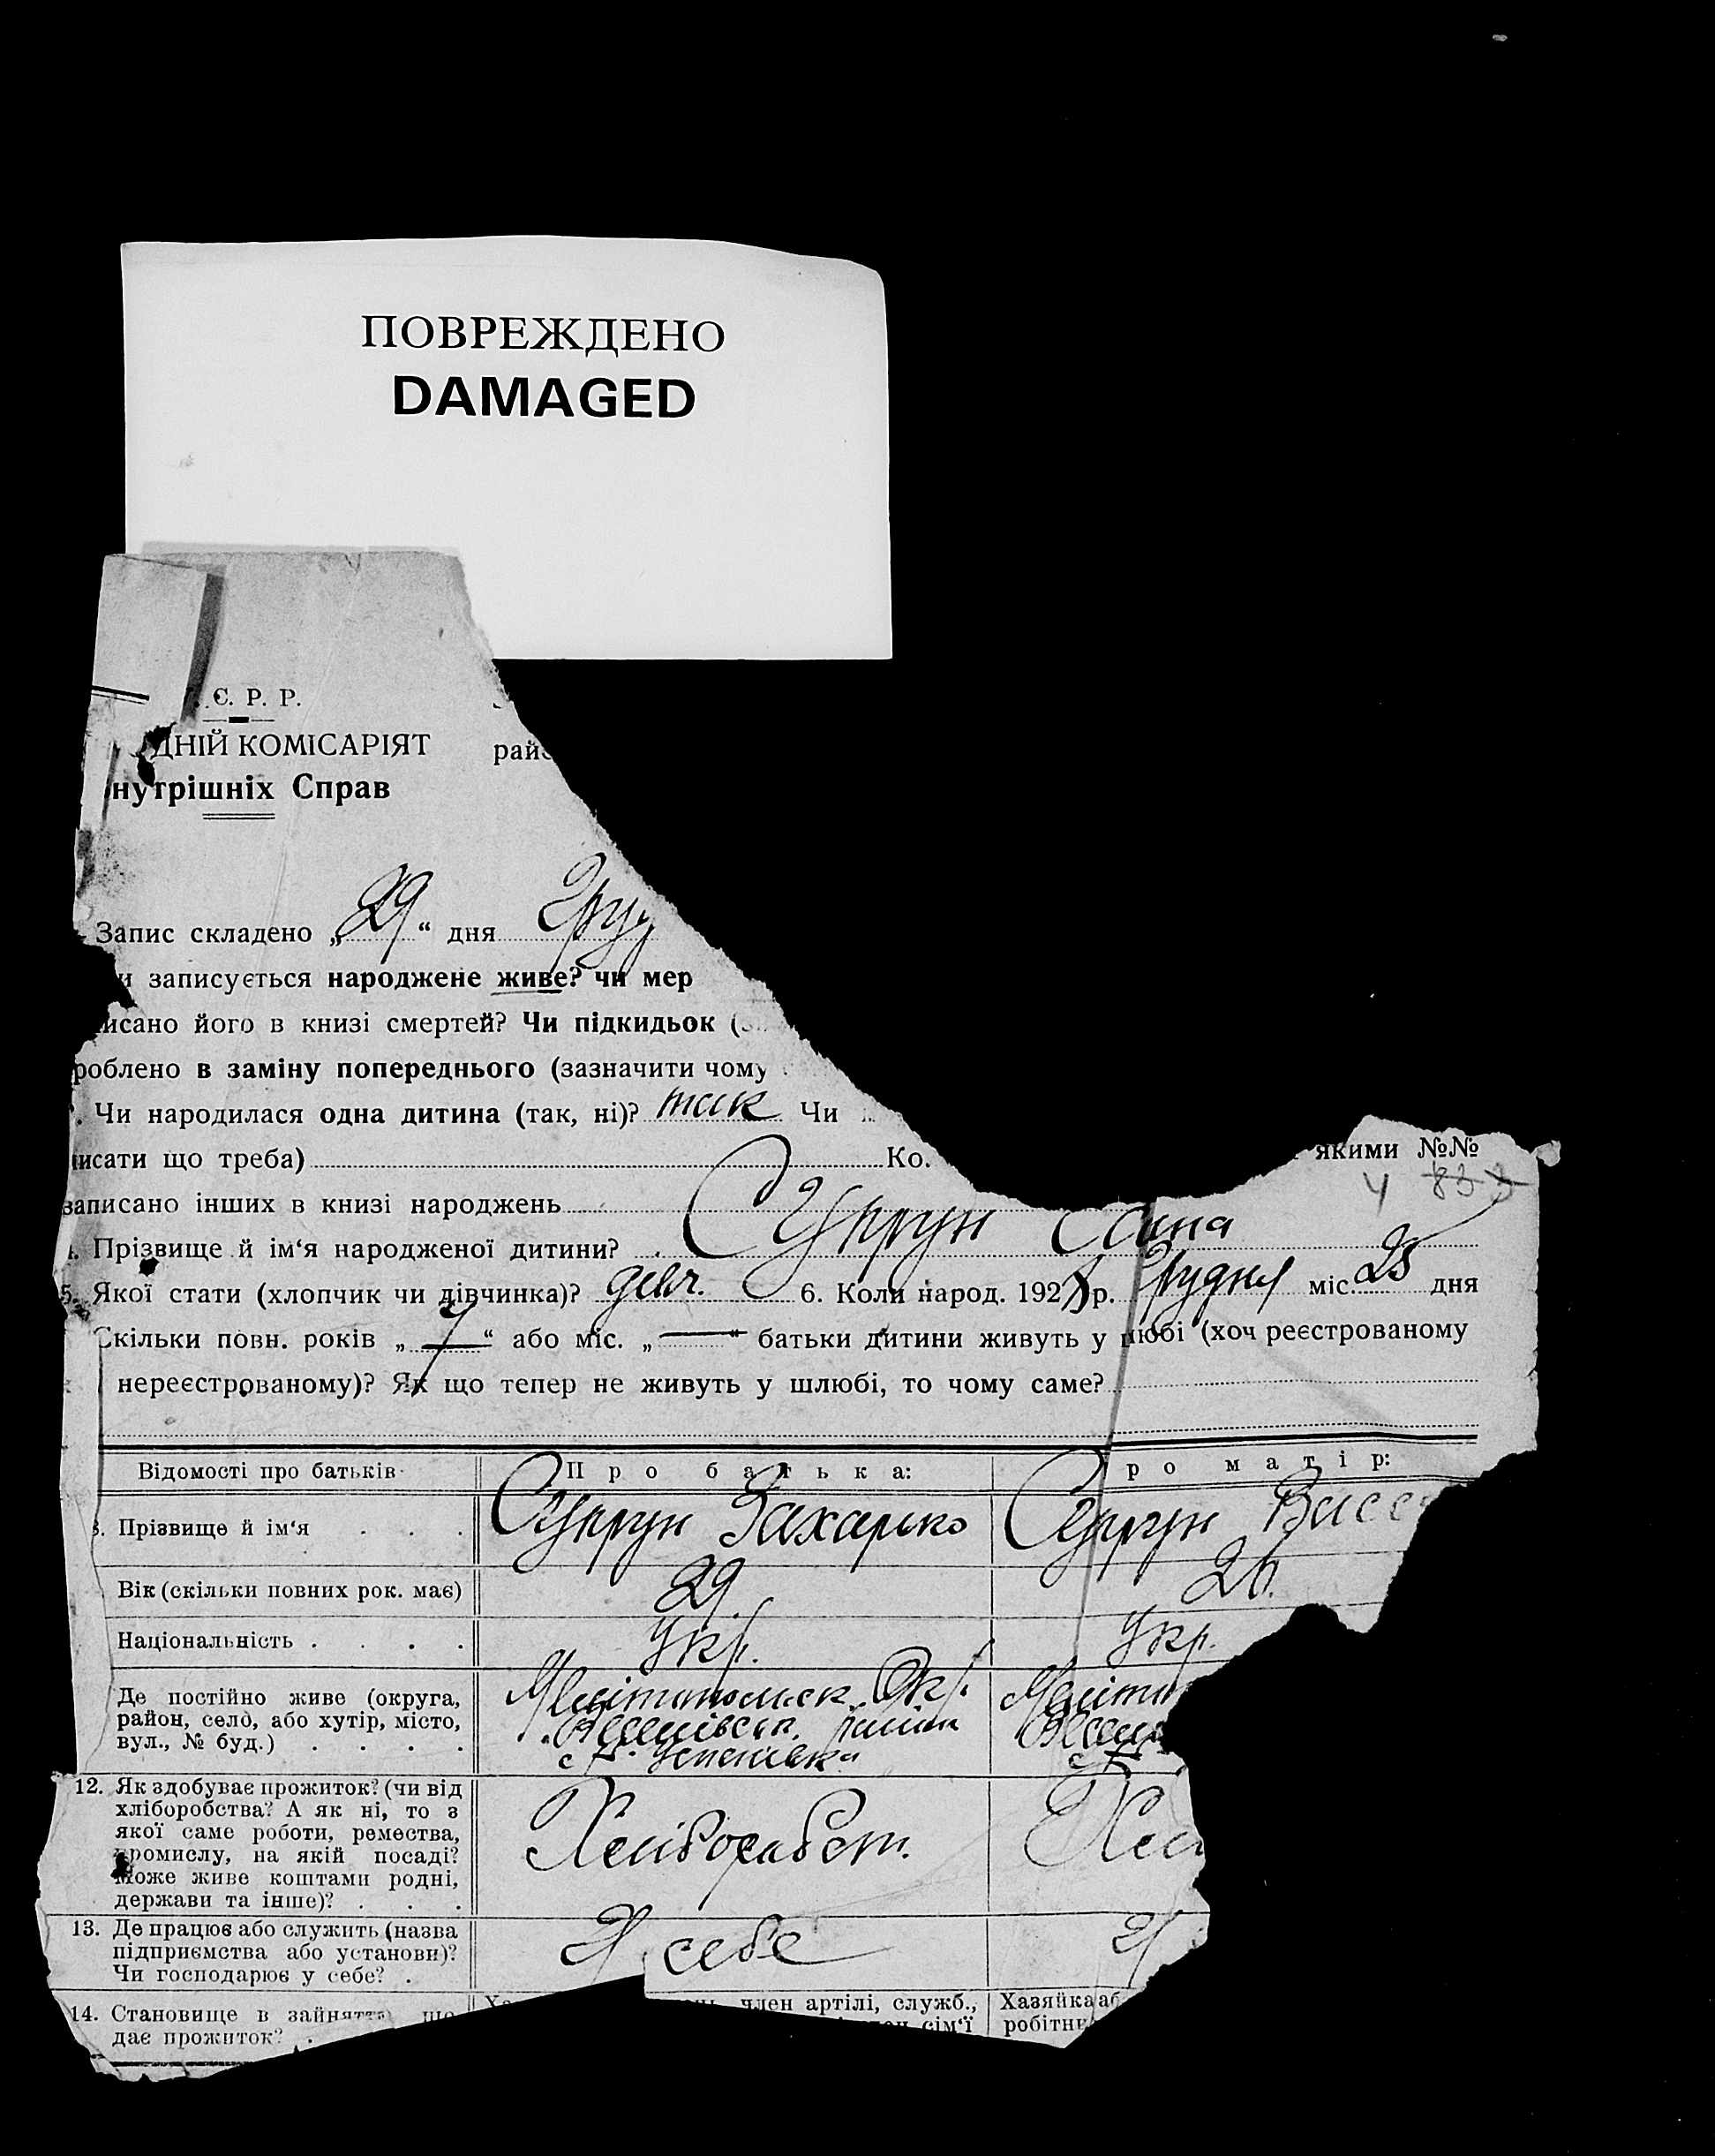 ПОВРЕЖДЕНО
DAMAGED
. Є. Р. Р.
ДНІЙ КОМІСАРІЯТ
нутрішніх Справ
Запис складено „29“ дня Груд
и записується народжене живе? чи мер
исано його в книзі смертей? Чи підкидьок (
роблено в заміну попереднього (зазначити чому
. Чи народилася одна дитина (так, ні)? так Чи
исати що треба) Ко. якими №№
записано інших в книзі народжень
4. Прізвище й ім‘я народженої дитини? Супрун
5. Якої стати (хлопчик чи дівчинка)? девч. 6. Коли народ. 192 р. Грудня міс. дня
Скільки повн. років „7“ або міс. „—“ батьки дитини живуть у шлюбі (хоч реєстрованому
нереєстрованому)? Як що тепер не живуть у шлюбі, то чому саме?
Відомості про батьків Про батька: ро матір:
8. Прізвище й ім‘я . . . Супрун Захарько Супрун Васс
Вік (скільки повних рок. має) 29 26.
Національність . . . . Укр. Укр.
Де постійно живе (округа, Мелітопольск. Окр. Меліто
район, село, або хутір, місто, Веселівськ. район Весел
вул., № буд.) . . . . с. Успенівка с.
12. Як здобуває прожиток? (чи від
хліборобства? А як ні, то з
якої саме роботи, ремества,
промислу, на якій посаді? Хліборобст. Хл
Може живе коштами родні,
держави та інше)? . . .
13. Де працює або служить (назва
підприємства або установи)? У себе У
Чи господарює у себе? .
14. Становище в зайнятті, що член артілі, служб., Хазяйка аб
дає прожиток? . сім‘ї робітни